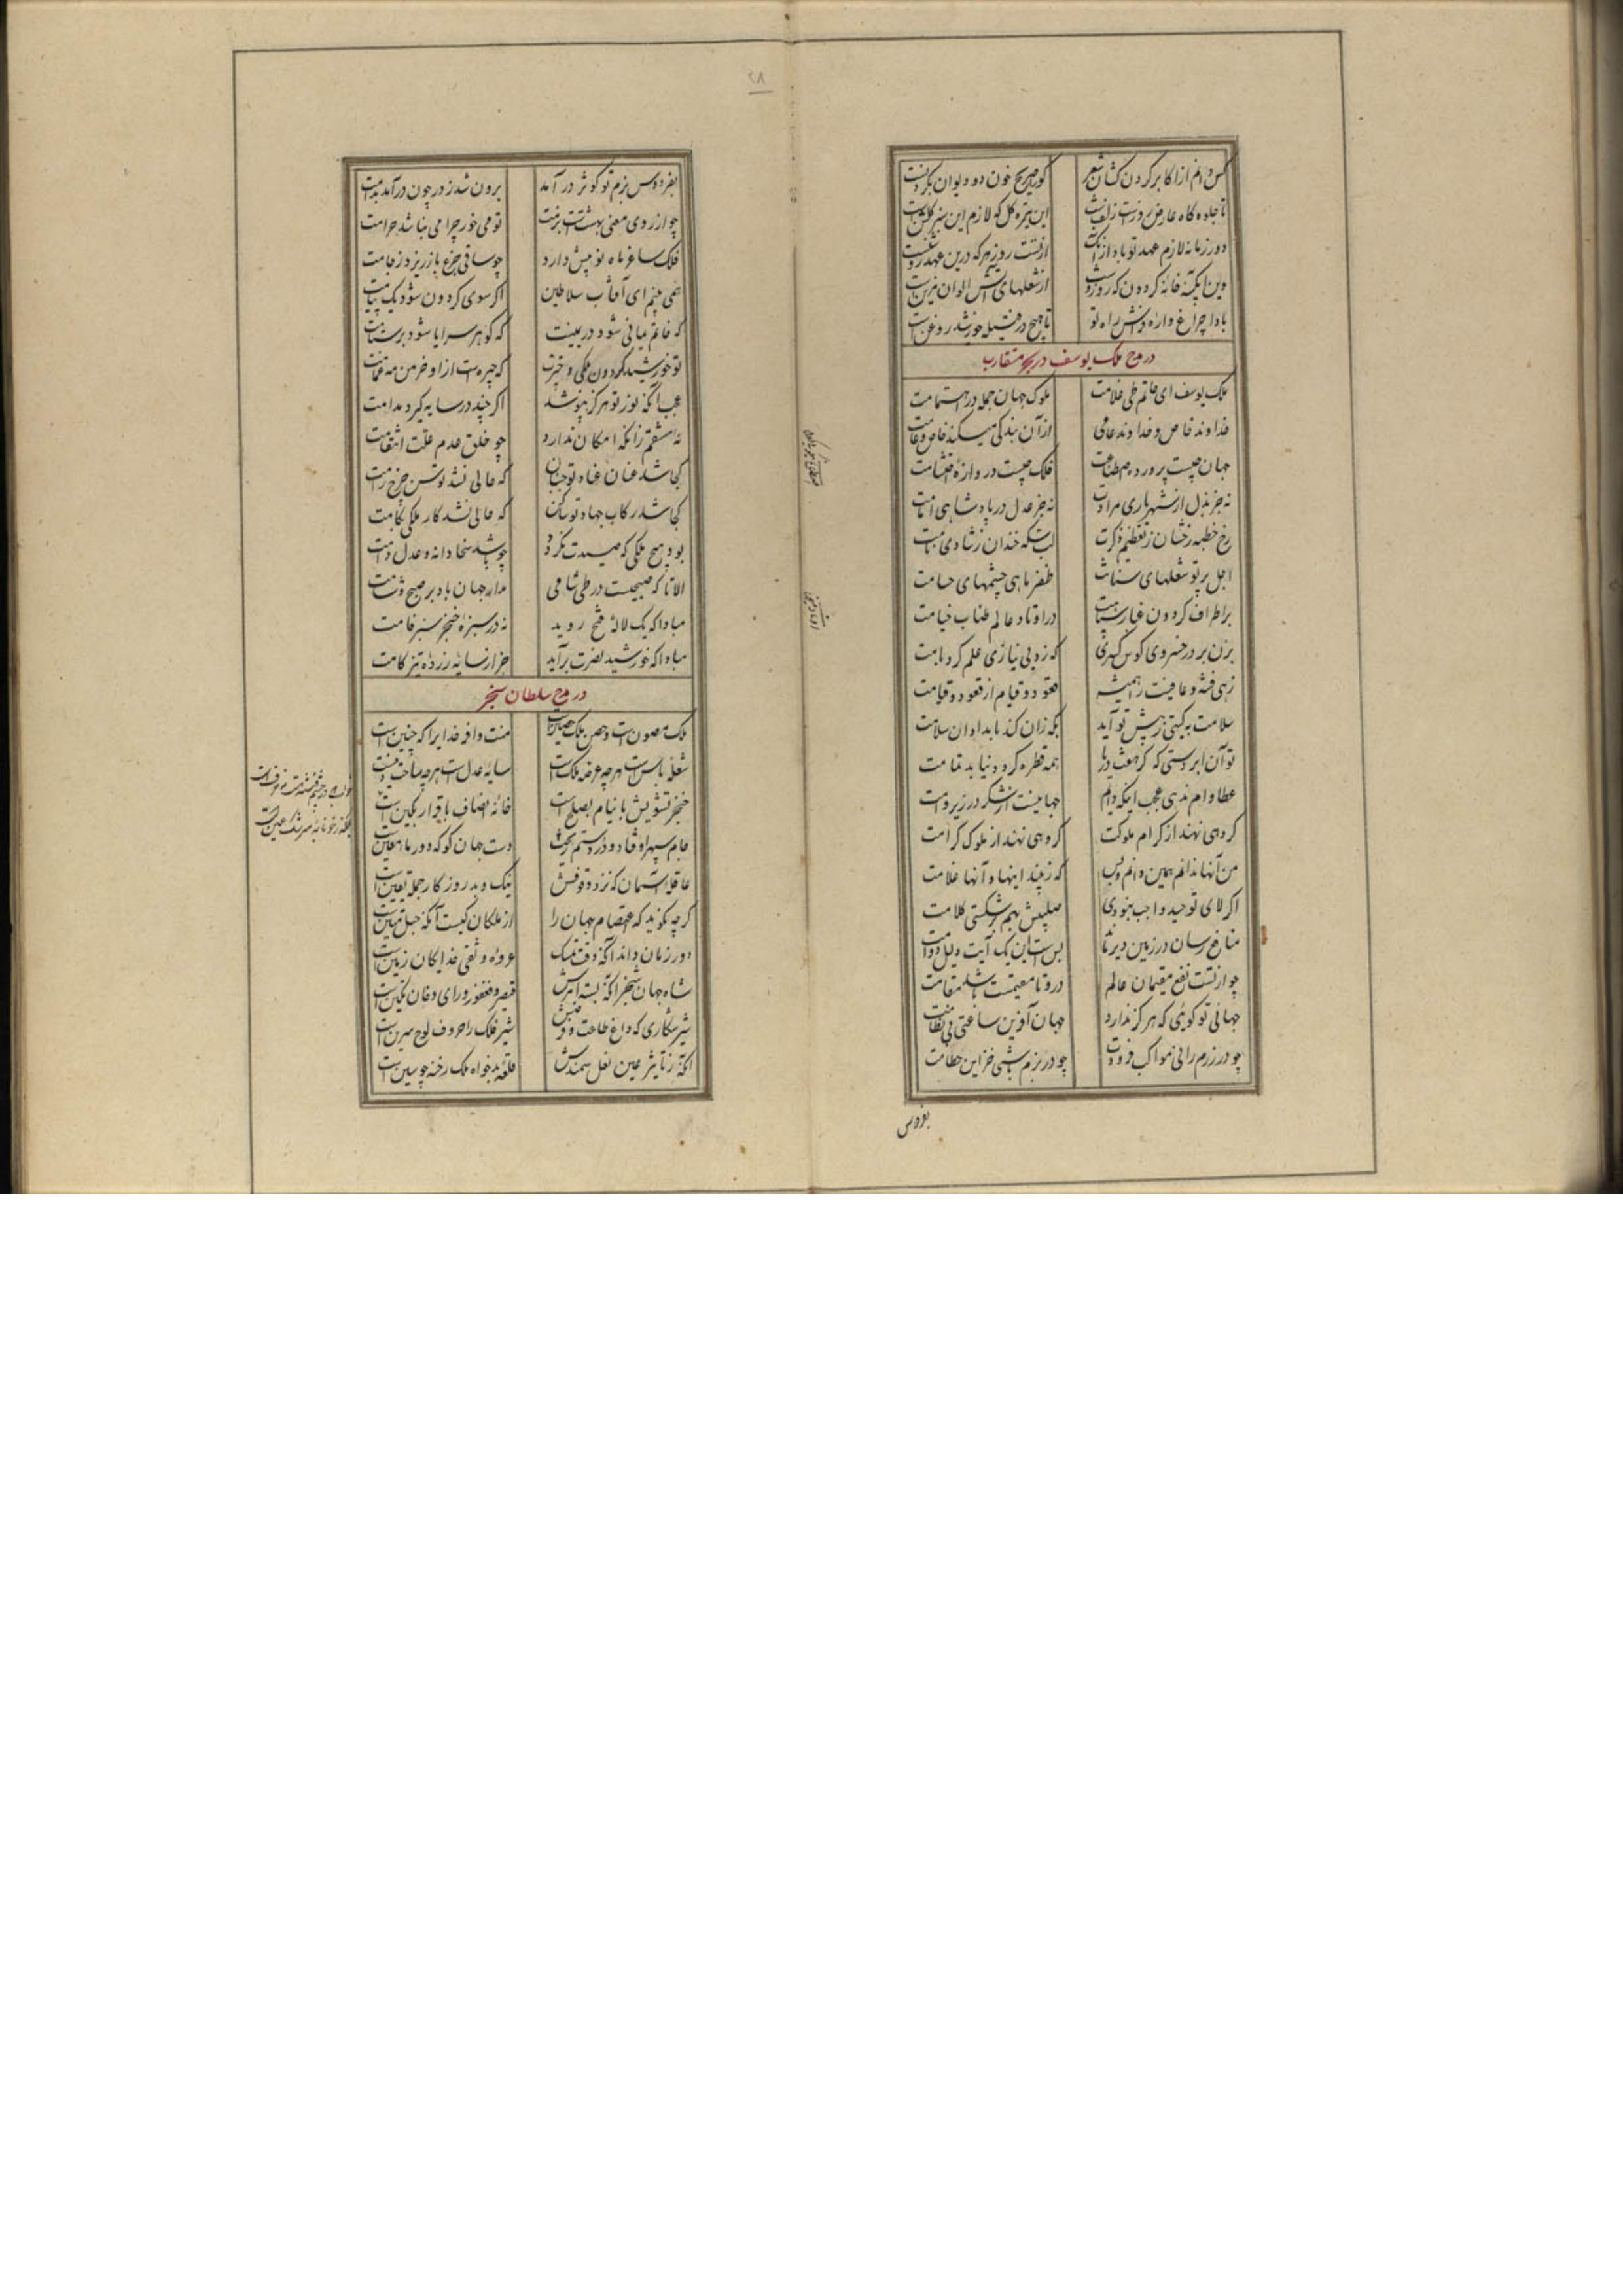 ۲۸
کس دانم از اکابر گردن کشان شعر کورا صریح خون دو دیوان بگردنست
تا جلوه گاه عارض روزست زلف شب این تیره گل که لازم این سبز گلشن است
دور زمانه لازم عهد تو باد از آنک از تست روز هر که درین عهد روشنست
وین آبگینه خانه گردون که روز و شب از شعلهای آتش الوان مزین است
بادا چراغ واره فراش راه تو تا هیچ در فتیله خورشید روغن است
در مدح ملک یوسف در بحر متقارب
ملک یوسف ای حاتم طی غلامت ملوک جهان جمله در اهتمامت
خداوند خاص و خداوند عامی از آن بندگی میکند خاص و عامت
جهان چیست پرورده اصطناعت فلک چیست دروازه احتشامت
نه جز بذل از شهریاری مرادت نه جز عدل در پادشاهی امامت
رخ خطبه رخشان ز تعظیم ذکرت لب سکه خندان ز شادی نامت
اجل پرتو شعلهای سنانت ظفر ماهی چشمهای حسامت
بر اطراف گردون غبار سپاهت در اوتاد عالم طناب خیامت
بزن بر در خسروی کوس کسری که زد بی نیازی علم گرد بامت
زهی فتنه و عافیت را همیشه قعود و قیام از قعود و قیامت
سلامت به گیتی ز پیش تو آید بگه زان کند بامدادان سلامت
تو آن ابر دستی که گر معث دریا همه قطره گردد نیابد تمامت
عطا وام ندهی عجب اینکه دایم جهانیست از شکر در زیر وامت
گروهی نهند از کرام ملوکت گروهی نهند از ملوک کرامت
من آنها ندانم همین دانم و بس که زیبند اینها و آنها غلامت
اگر لای توحید واجب نبودی صلیبش بهم برشکستی کلامت
منافع رسان در زمین دیر ماند بس است این یک آیت دلیل دوامت
چو از تست نفع مقیمان عالم درو تا مقیمست باشد مقامت
جهانی تو گویی که هرگز ندارد جهان آفرین ساعتی بی نظامت
چو در رزم رانی مواکب فزونت چو در بزم باشی خزاین حطامت
بفردوس
بفردوس بزم تو کوثر در آمد برون شد ز در چون در آمد مدامت
چو از روی معنی بهشتست بزمت تو می خور چرا می نباشد حرامت
فلک ساغر ماه نو پیش دارد چو ساقی جرعه بازریزد ز جامت
همی بینم ای آفتاب سلاطین اگر سوی گردون شود یک پیامت
که خاتم یمانی شود در یمینت که گوهر سرایا شود بر ستامت
تو خورشید گردون ملکی و چترت که چیره است ازاو خرمن مه غمامت
عجب آنکه نور تو هرگز نپوشد اگر چند در سایه گیرد مدامت
نه منتقم زانکه امکان ندارد چو خلق عدم علت انتقامت
کجا شد عنان عناد تو جنبان که عالی نشد توسن چرخ رامت
کجا شد رکاب جهاد تو ساکن که حالی نشد کار ملکی بکامت
بود هیچ ملکی که صیدت نگردد چو باشد سخا دانه و عدل دامت
الا تا که صبحیست در طی شامی مدار جهان باد بر صبح و شامت
مبادا که یک لاله فتح روید نه در سبزه خنجر سبز فامت
مبادا که خورشید نصرت برآید جز از سایه زرده تیز گامت
در مدح سلطان سنجر
ملک مصون است و حصن ملک حصین است منت وافر خدایرا که چنین است
شعله باس است هرچه عرصه ملک است سایه عدل است هرچه ساحت دینست
خنجر تشویش با نیام بصلح است خانه انصاف با قرار مکین است
جام سپهر اوفتاد و درد ستم ریخت دست جهان گو که دور ماء معین است
عاقله آسمان که نزد وقوفش نیک و بد روزگار جمله یقین است
گرچه نگوید که اعتصام جهان را از ملکان کیست آنکه حبل متین است
دور زمان داند آنکه وقت تمسک عروه وثقی خدایگان زمین است
شاه جهان سنجر آنکه بسته امرش قیصر و فغفور و رای و خان و تکین است
شیر شکاری که داغ طاعت فرضش شیر فلک را حروف لوح سرین است
آنکه ز تأثیر عین نعل سمندش قلعه بدخواه ملک رخنه چو سین است